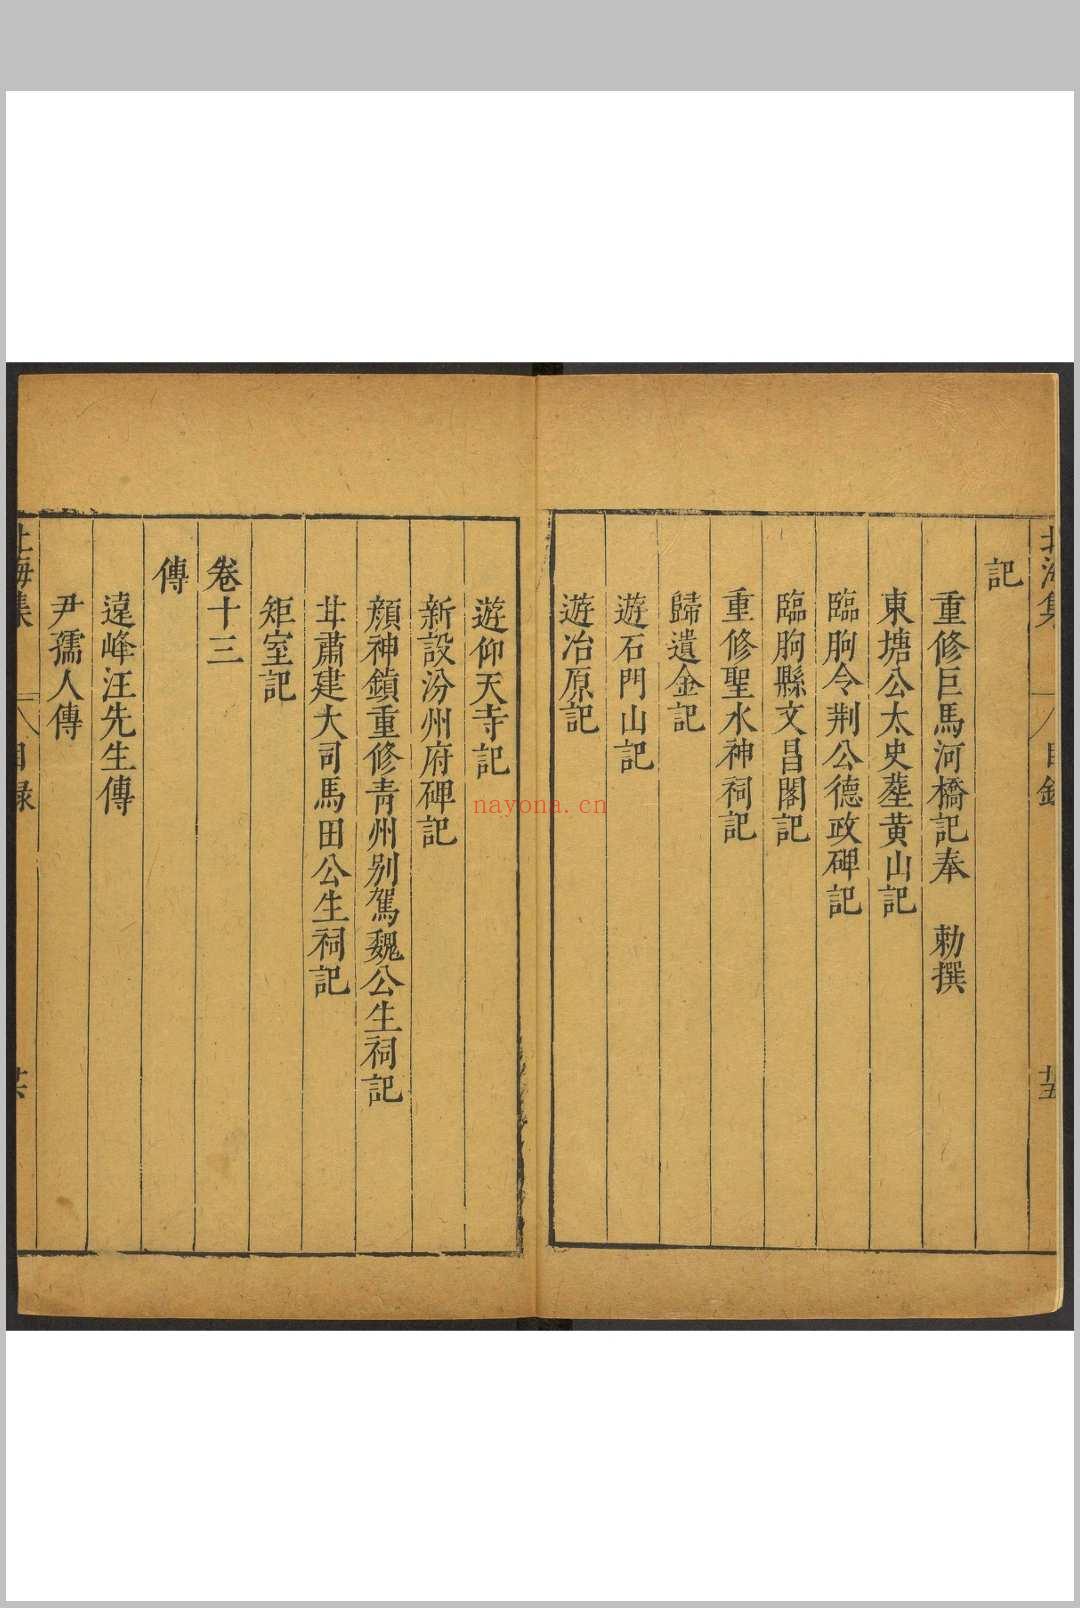 北海集 目錄 十五
記
重修巨馬河橋記奉 勅撰
東塘公太史塟黄山記
臨朐令荆公德政碑記
臨朐縣文昌閣記
重修聖水神祠記
歸遺金記
遊石門山記
遊冶原記
遊仰天寺記
新設汾州府碑記
顔神鎮重修青州别駕魏公生祠記
甘肅建大司馬田公生祠記
矩室記
卷十三
傳
遠峰汪先生傳
尹孺人傳
北海集 目録 十六
nayona.cn